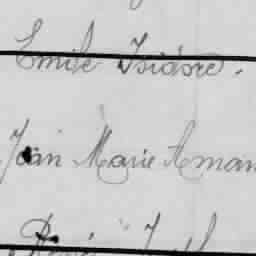 Emile Isidore.
Jean Marie Aman